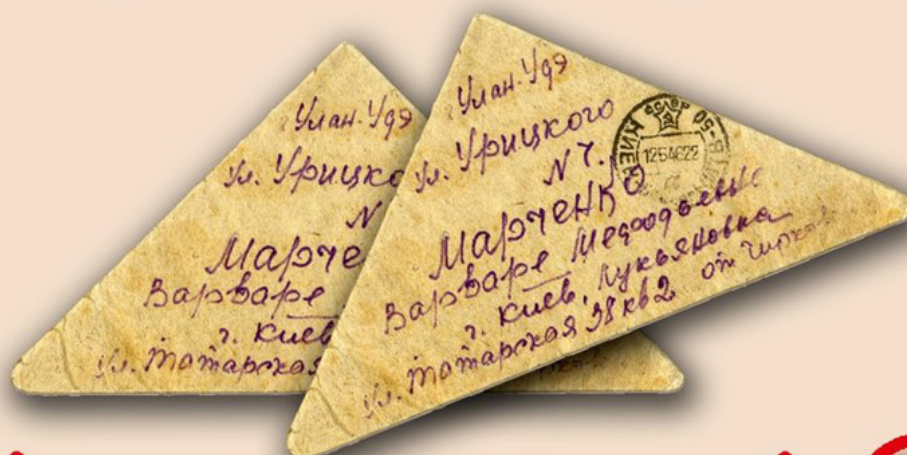 Улан-Удэ
ул. Урицко
N
Марче
Варваре
г. Киев
ул. Татарская
Улан-Удэ
ул. Урицкого
N 7.
Марченко
Варваре
г. Киев, Лукьяновка
ул. Татарская 38 кв 2 от
КИЕВ
125462 2